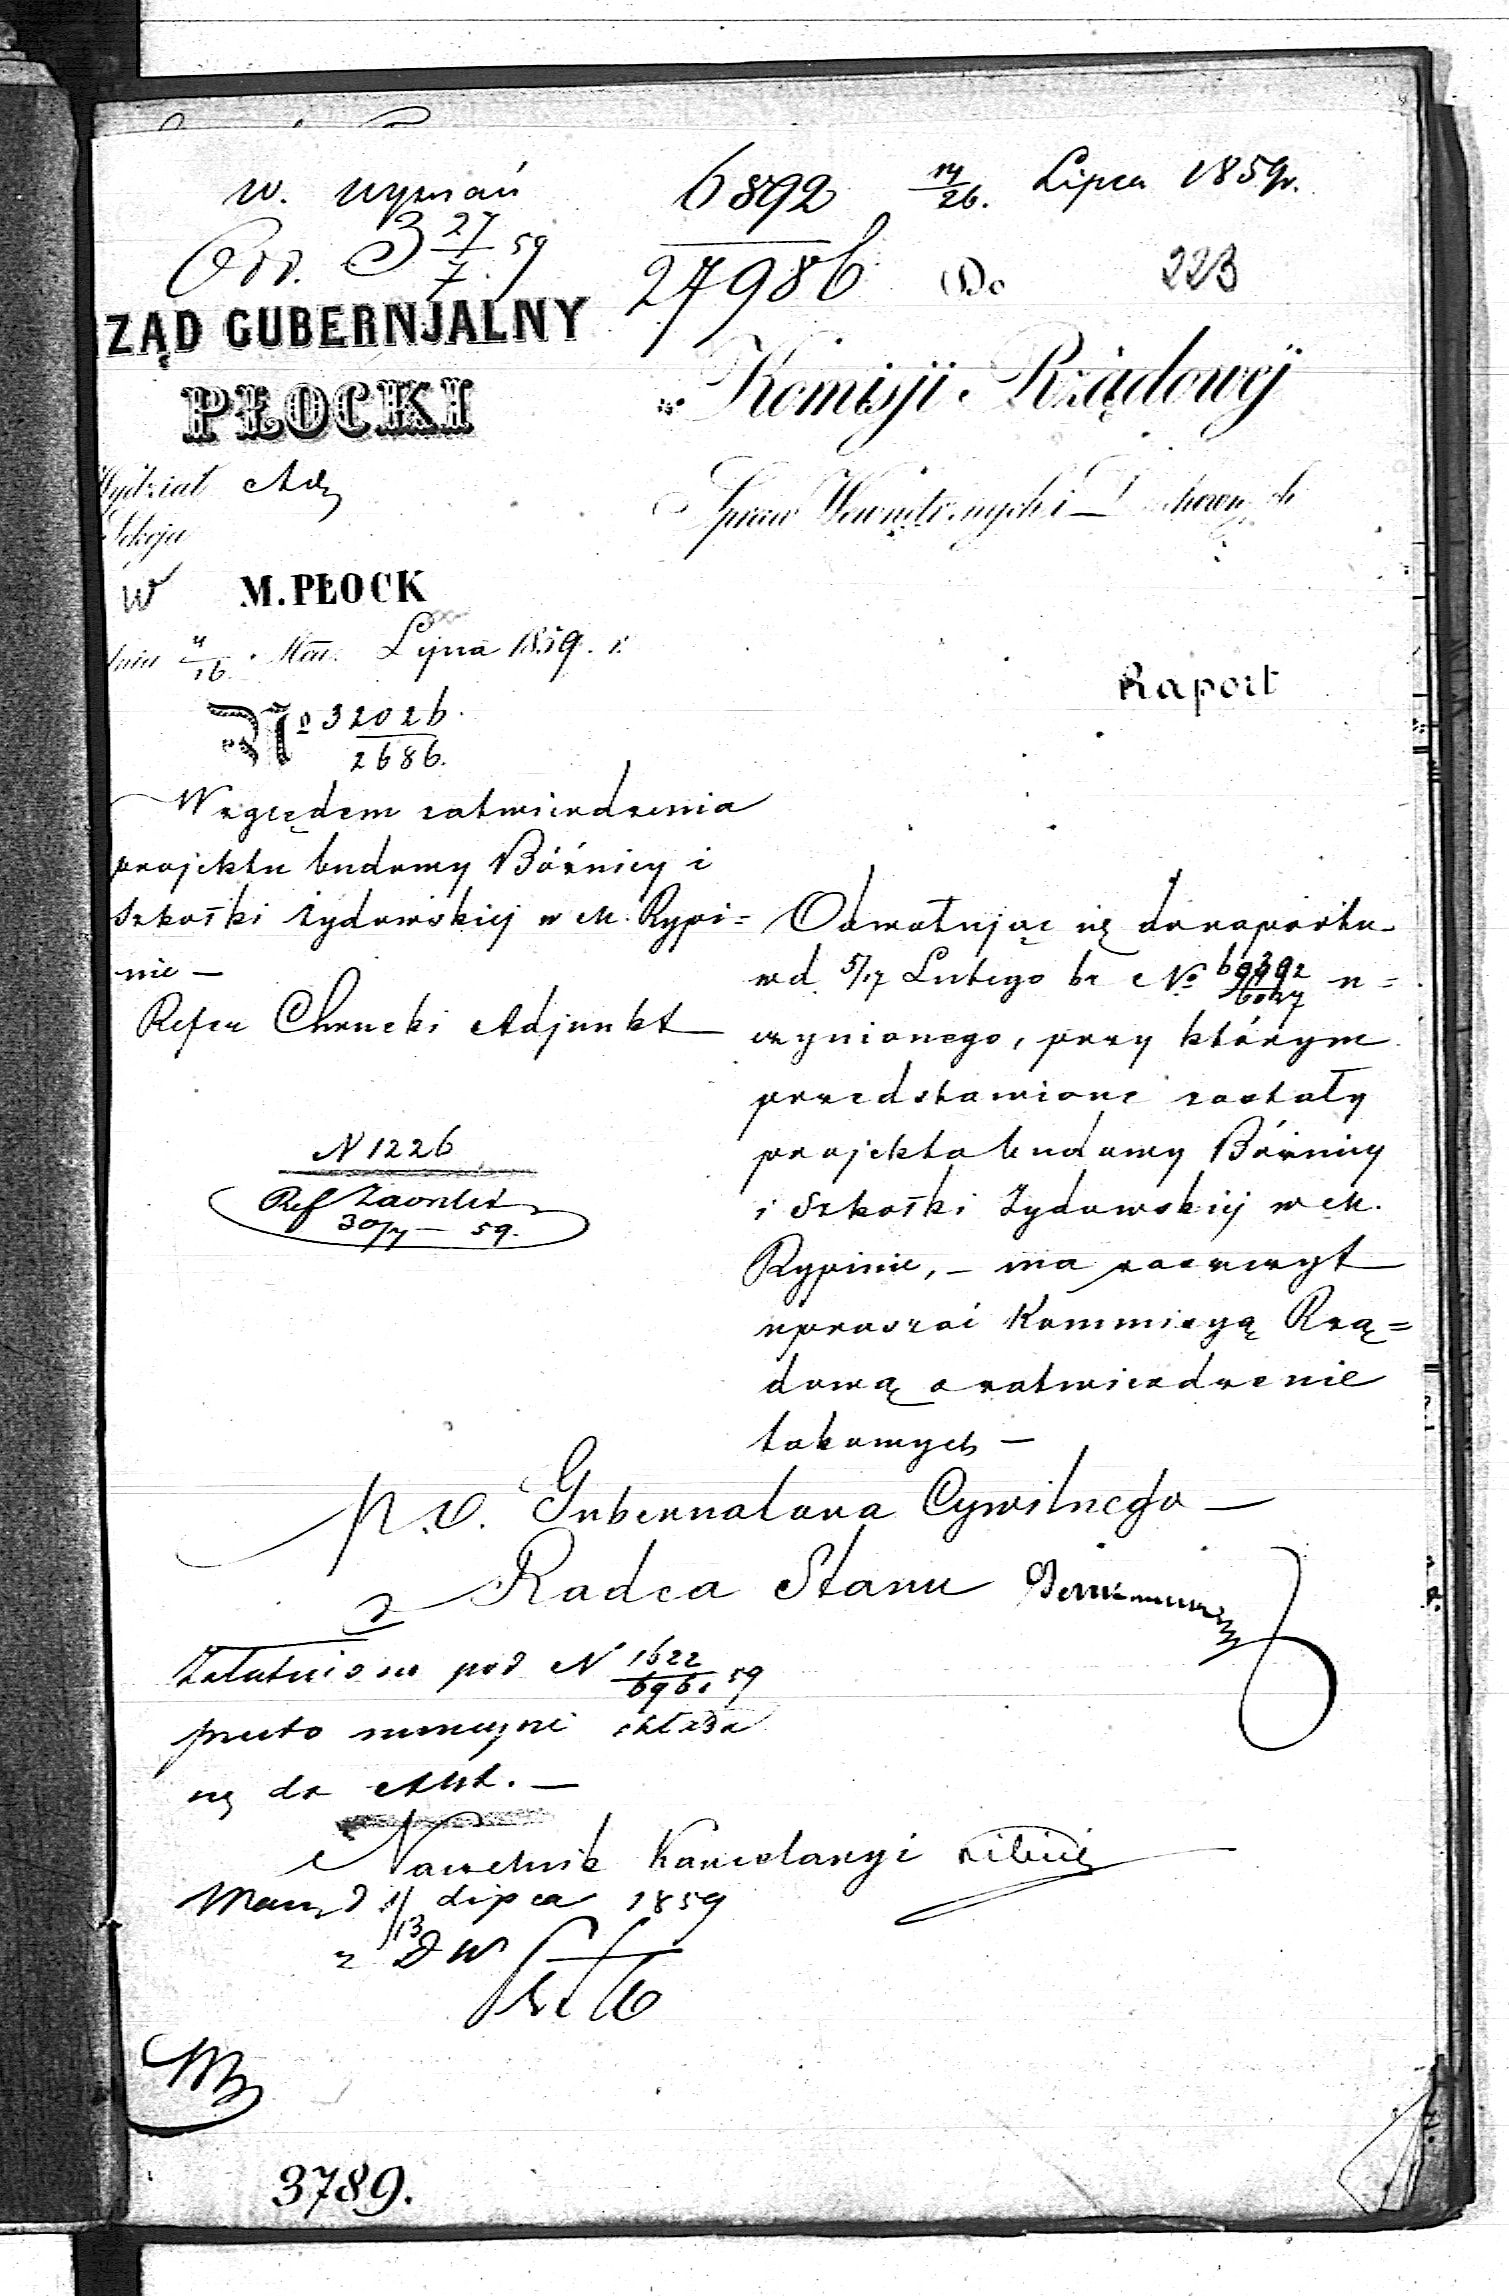 w. wyznań
6892
14/26. Lipca 1859 r.
Odd. 3 27/7 59
27986
Do
223
RZĄD GUBERNJALNY
PŁOCKI
Komisji Rządowéj
Spraw Wewnętrznych i Duchownych
Wydział Adm
Sekcja
w M. PŁOCK
dnia 4/16 Mca. Lipca 1859. r.
Raport
No 32026.
2686.
Względem zatwierdzenia
projektu budowy Bóżnicy i
Szkołki żydowskiej w M. Rypi=
nie —
Refer Chrucki Adjunkt
Odwołując się do raportu
w d. 5/17 Lutego br No u=
czynionego, przy którym
przedstawione zostały
projekta budowy Bóżnicy
i Szkołki Żydowskiej w M.
Rypinie, — ma zaszczyt
upraszać Kommissyą Rzą=
dową o zatwierdzenie
takowych —
N 1226
Ref
30/7 — 59.
p.o. Gubernatora Cywilnego —
Radca Stanu
Załatwiono pod N 1622/6961 59
przeto składa
się do Akt. —
Naczelnik Kancelaryi
d 1/13 Lipca 1859
z D W
3789.